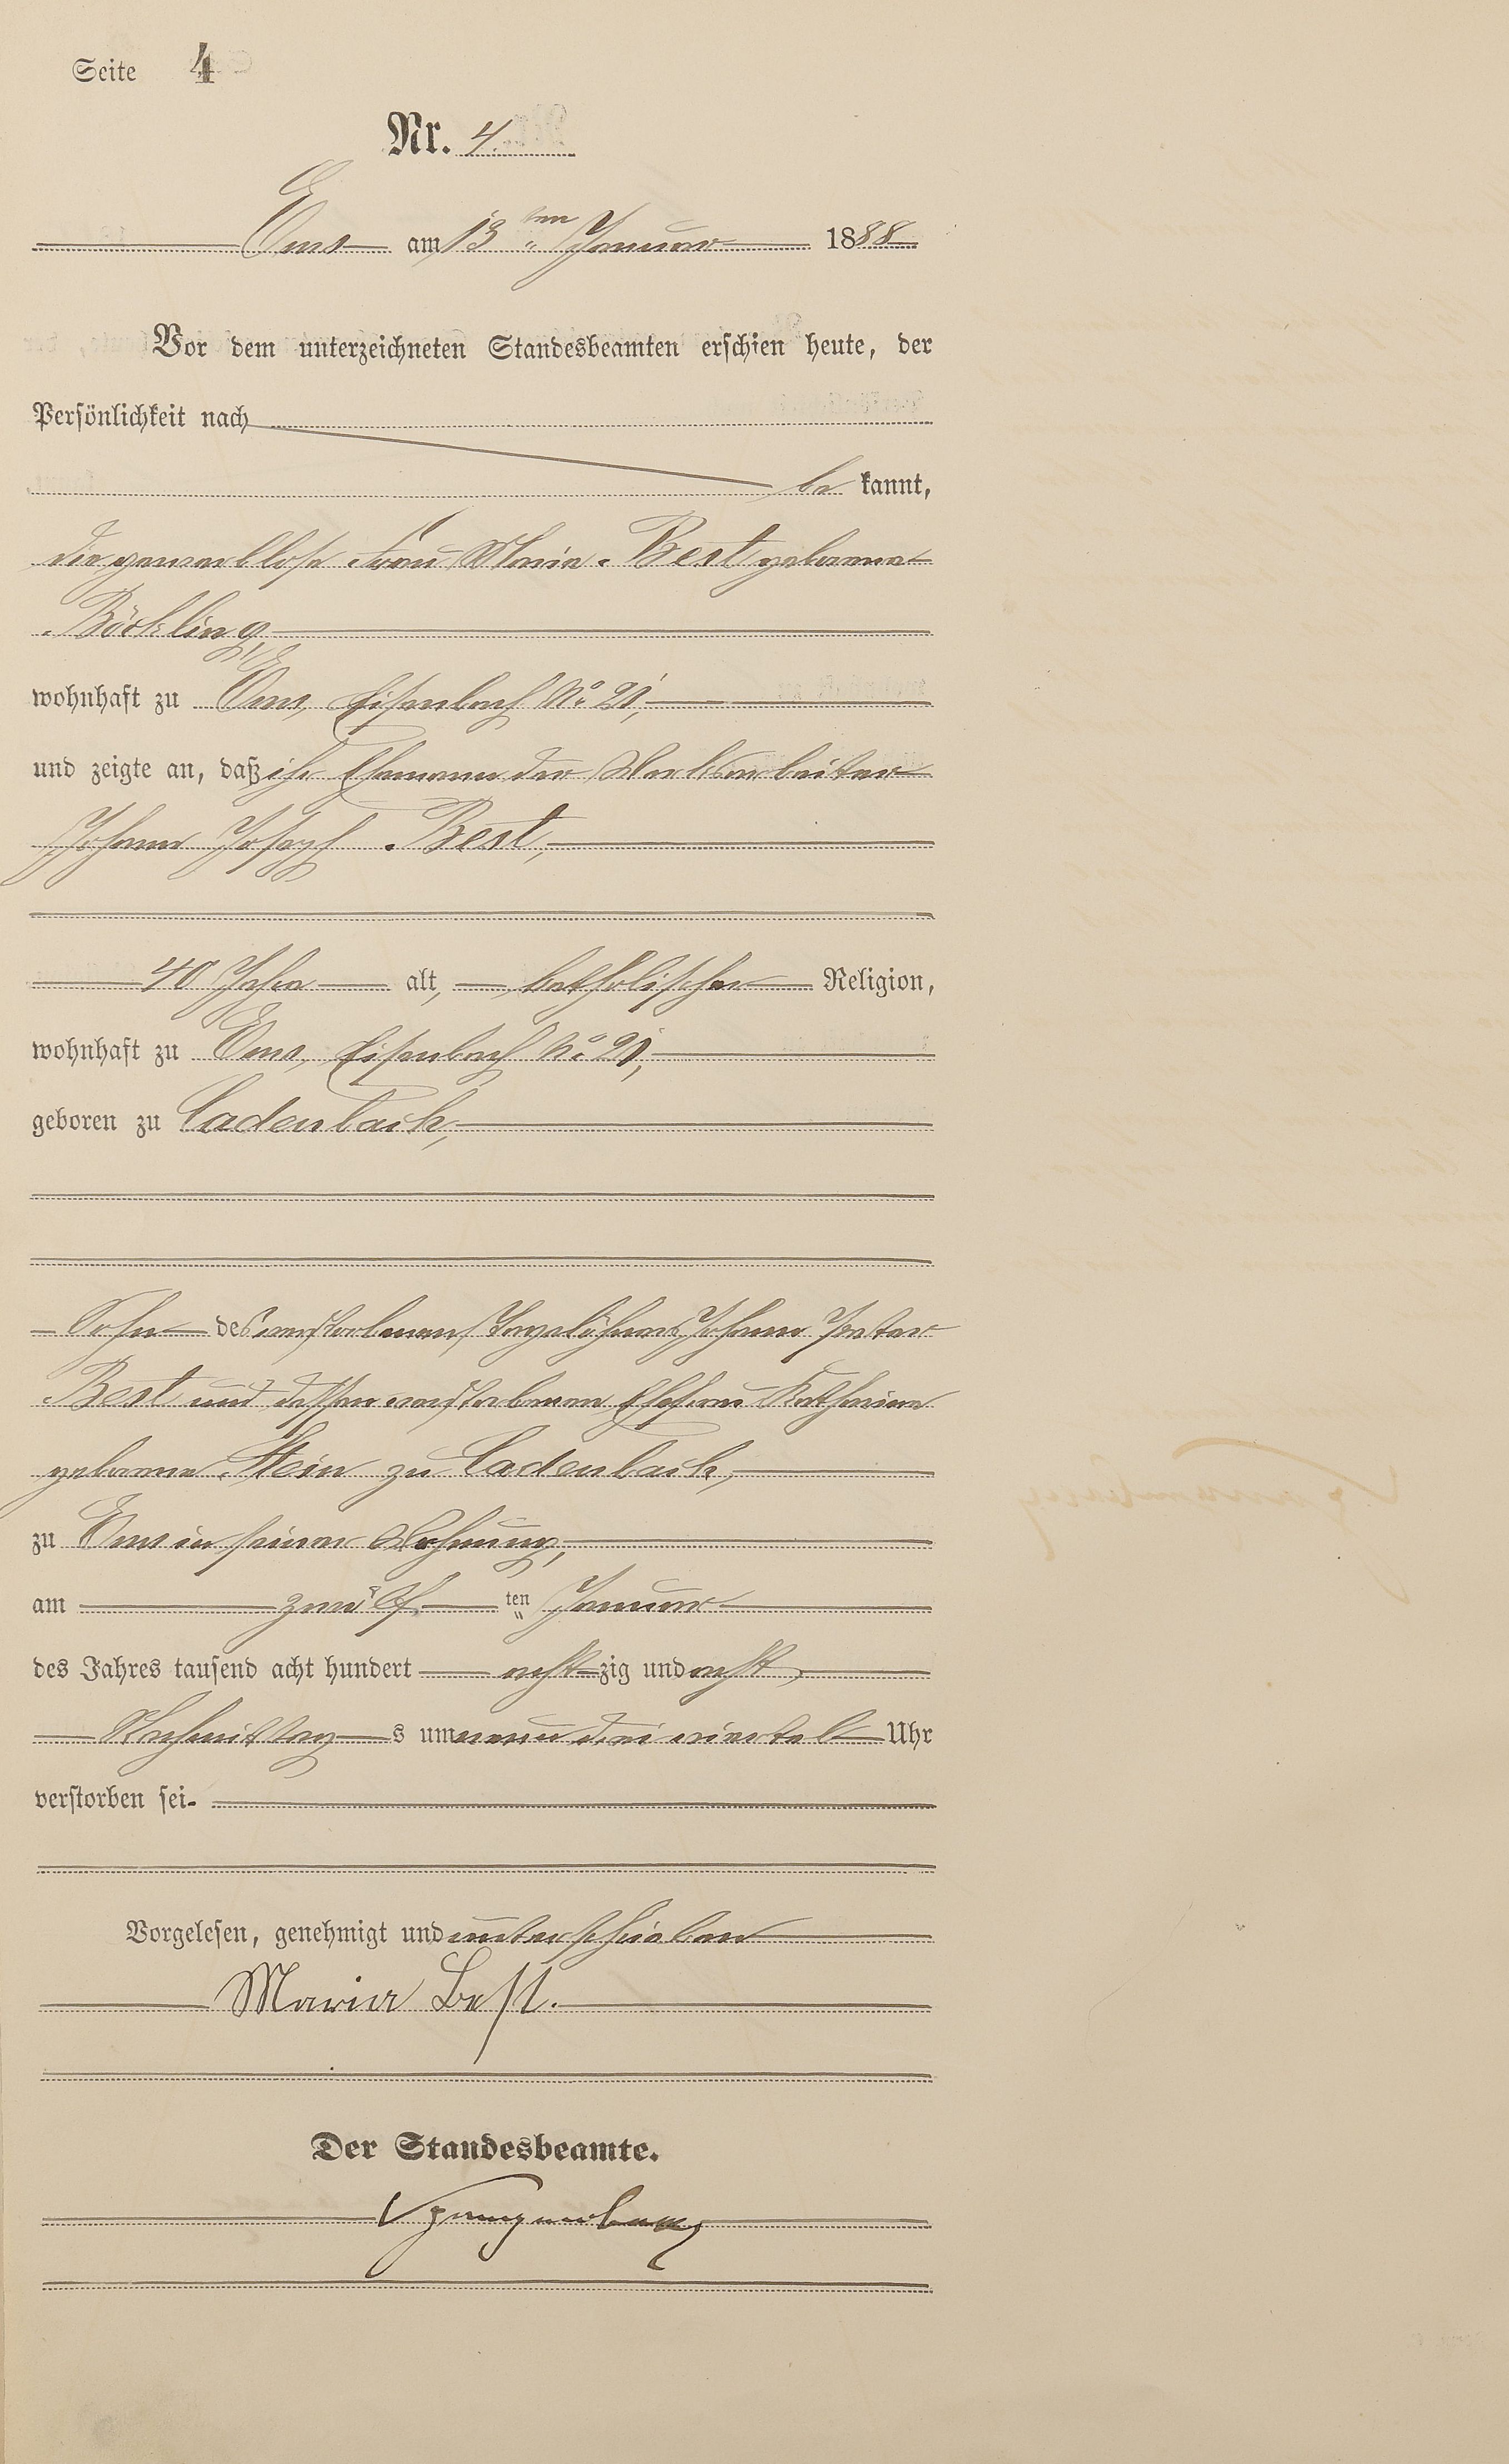 Seite 4
Nr. 4.
Ems am 13ten Januar 1888
Vor dem unterzeichneten Standesbeamten erschien heute, der
Persönlichkeit nach
be kannt,
die gewerblose Frau Marie Best geborene
Böckling,
wohnhaft zu Ems, Eisenbach No 21,
und zeigte an, daß ihr Ehemann der Werksarbeiter
Johann Joseph Best,
40 Jahre alt, katholischer Religion,
wohnhaft zu Ems, Eisenbach No 21,
geboren zu Cadenbach,
Sohn des verstorbenen Tagelöhners Johann Peter
Best und dessen verstorbenen Ehefrau Katharina
geborene Stein zu Cadenbach,
zu Ems in seiner Wohnung,
am zwölf ten Januar
des Jahres tausend acht hundert acht zig und acht,
Nachmittag s um neun drei viertel Uhr
verstorben sei.
Vorgelesen, genehmigt und unterschrieben
Maria Best.
Der Standesbeamte.